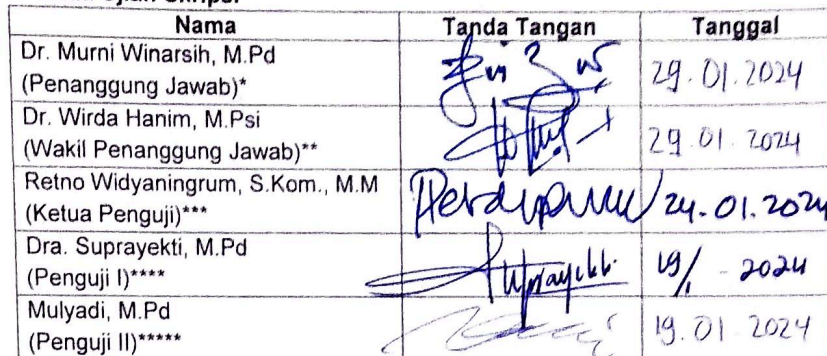 Ujian Skripsi
Nama Tanda Tangan Tanggal
Dr. Murni Winarsih, M.Pd
(Penanggung Jawab)* 29.01.2024
Dr. Wirda Hanim, M.Psi
(Wakil Penanggung Jawab)** 29.01.2024
Retno Widyaningrum, S.Kom., M.M
(Ketua Penguji)*** 24.01.2024
Dra. Suprayekti, M.Pd
(Penguji I)**** Suprayekti 19/ - 2024
Mulyadi, M.Pd
(Penguji II)***** 19.01.2024